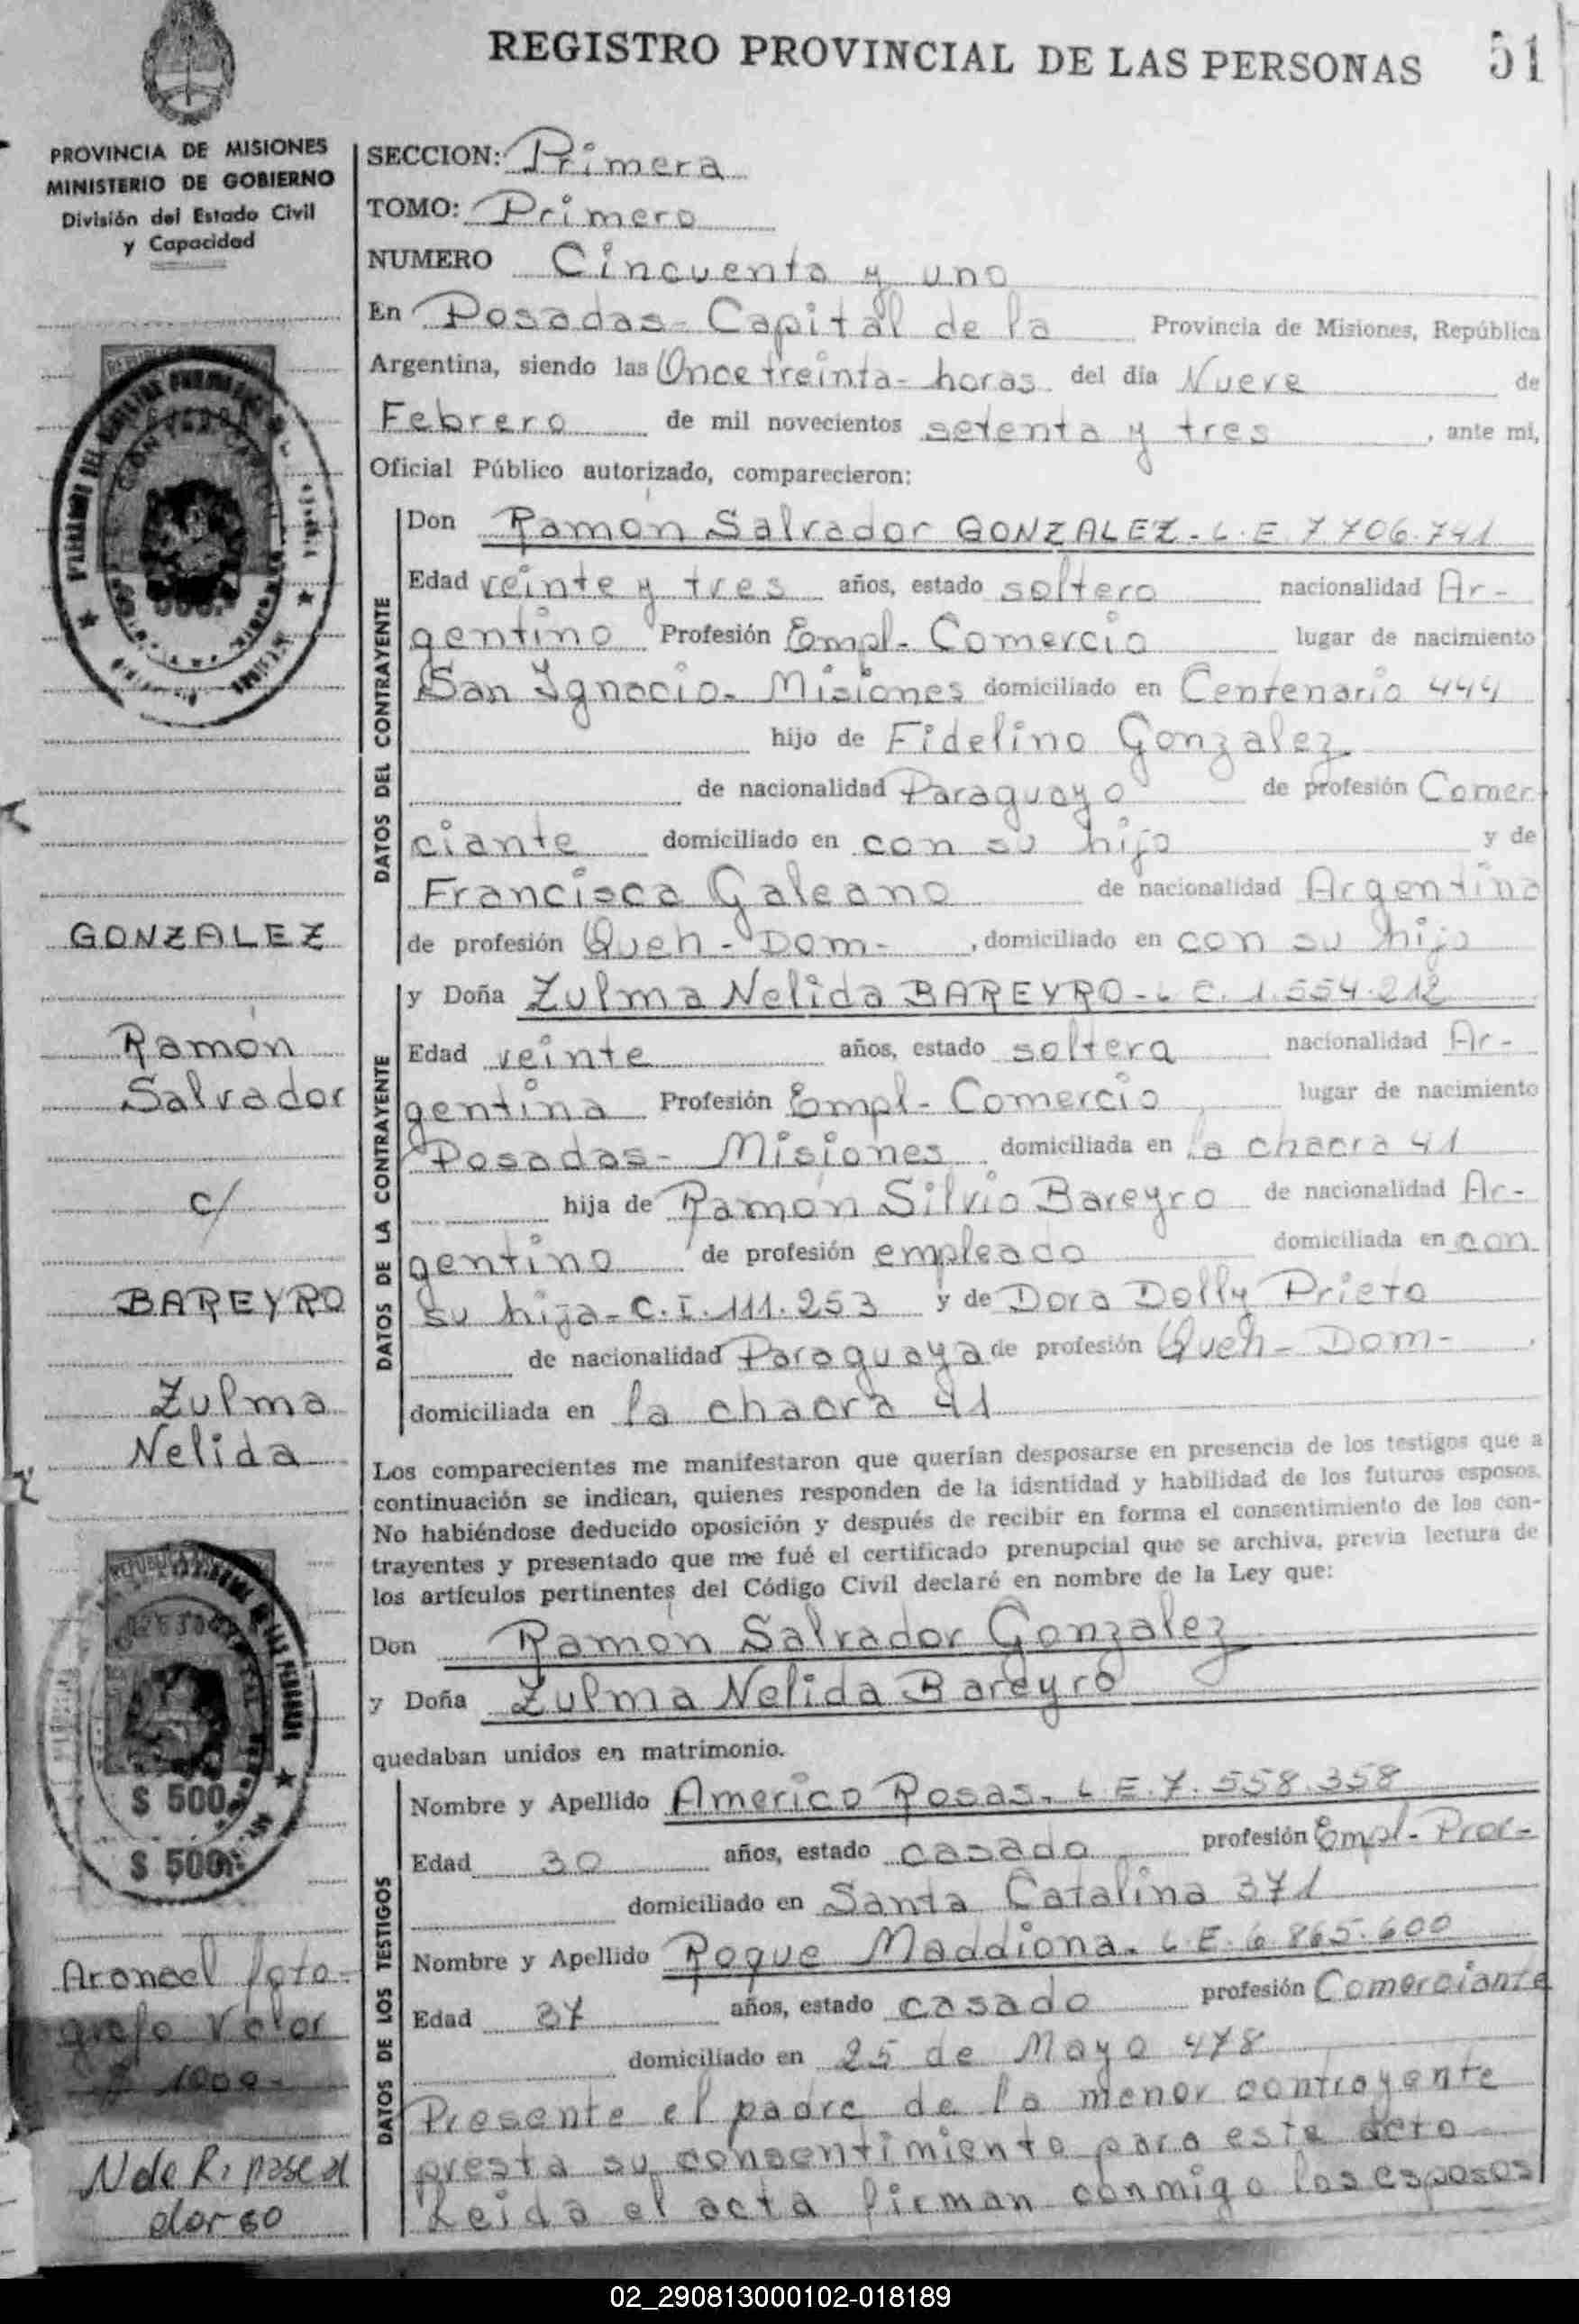 REGISTRO PROVINCIAL DE LAS PERSONAS 51
PROVINCIA DE MISIONES
MINISTERIO DE GOBIERNO
División del Estado Civil
y Capacidad
SECCION: Primera
TOMO: Primero
NUMERO Cincuenta y uno
En Posadas - Capital de la Provincia de Misiones, República
Argentina, siendo las Once treinta - horas del día Nueve de
Febrero de mil novecientos setenta y tres, ante mi,
Oficial Público autorizado, comparecieron:
DATOS DEL CONTRAYENTE
Don Ramón Salvador GONZALEZ - L.E. 7.706.741
Edad veinte y tres años, estado soltero nacionalidad Ar-
gentino Profesión Empl - Comercio lugar de nacimiento
San Ignacio - Misiones domiciliado en Centenario 444
hijo de Fidelino Gonzalez
de nacionalidad Paraguayo de profesión Comer
ciante domiciliado en con su hijo y de
Francisca Galeano de nacionalidad Argentina
de profesión Queh - Dom -, domiciliado en con su hijo
DATOS DE LA CONTRAYENTE
y Doña Zulma Nelida BAREYRO - L.C. 1.554.212
Edad veinte años, estado soltera nacionalidad Ar-
gentina Profesión Empl - Comercio lugar de nacimiento
Posadas - Misiones domiciliada en la chacra 41
hija de Ramón Silvio Bareyro de nacionalidad Ar-
gentino de profesión empleado domiciliada en con
su hija - C.I. 111.253 y de Dora Dolly Prieto
de nacionalidad Paraguaya de profesión Queh - Dom -
domiciliada en la chacra 41
Los comparecientes me manifestaron que querían desposarse en presencia de los testigos que a
continuación se indican, quienes responden de la identidad y habilidad de los futuros esposos.
No habiéndose deducido oposición y después de recibir en forma el consentimiento de los con-
trayentes y presentado que me fué el certificado prenupcial que se archiva, previa lectura de
los artículos pertinentes del Código Civil declaré en nombre de la Ley que:
Don Ramón Salvador Gonzalez
y Doña Zulma Nelida Bareyro
quedaban unidos en matrimonio.
DATOS DE LOS TESTIGOS
Nombre y Apellido Americo Rosas - L.E. 7.558.358
Edad 30 años, estado casado profesión Empl - Prov -
domiciliado en Santa Catalina 371
Nombre y Apellido Roque Maddiona - L.E. 6.865.600
Edad 37 años, estado casado profesión Comerciante
domiciliado en 25 de Mayo 478
Presente el padre de la menor contrayente
presta su consentimiento para este acto
Leida el acta firman conmigo los esposos
GONZALEZ
Ramón
Salvador
c/
BAREYRO
Zulma
Nelida
$ 500
$ 500
Arancel foto-
grafo Valor
$ 1000-
N de R: pase al
dorso
02_290813000102-018189